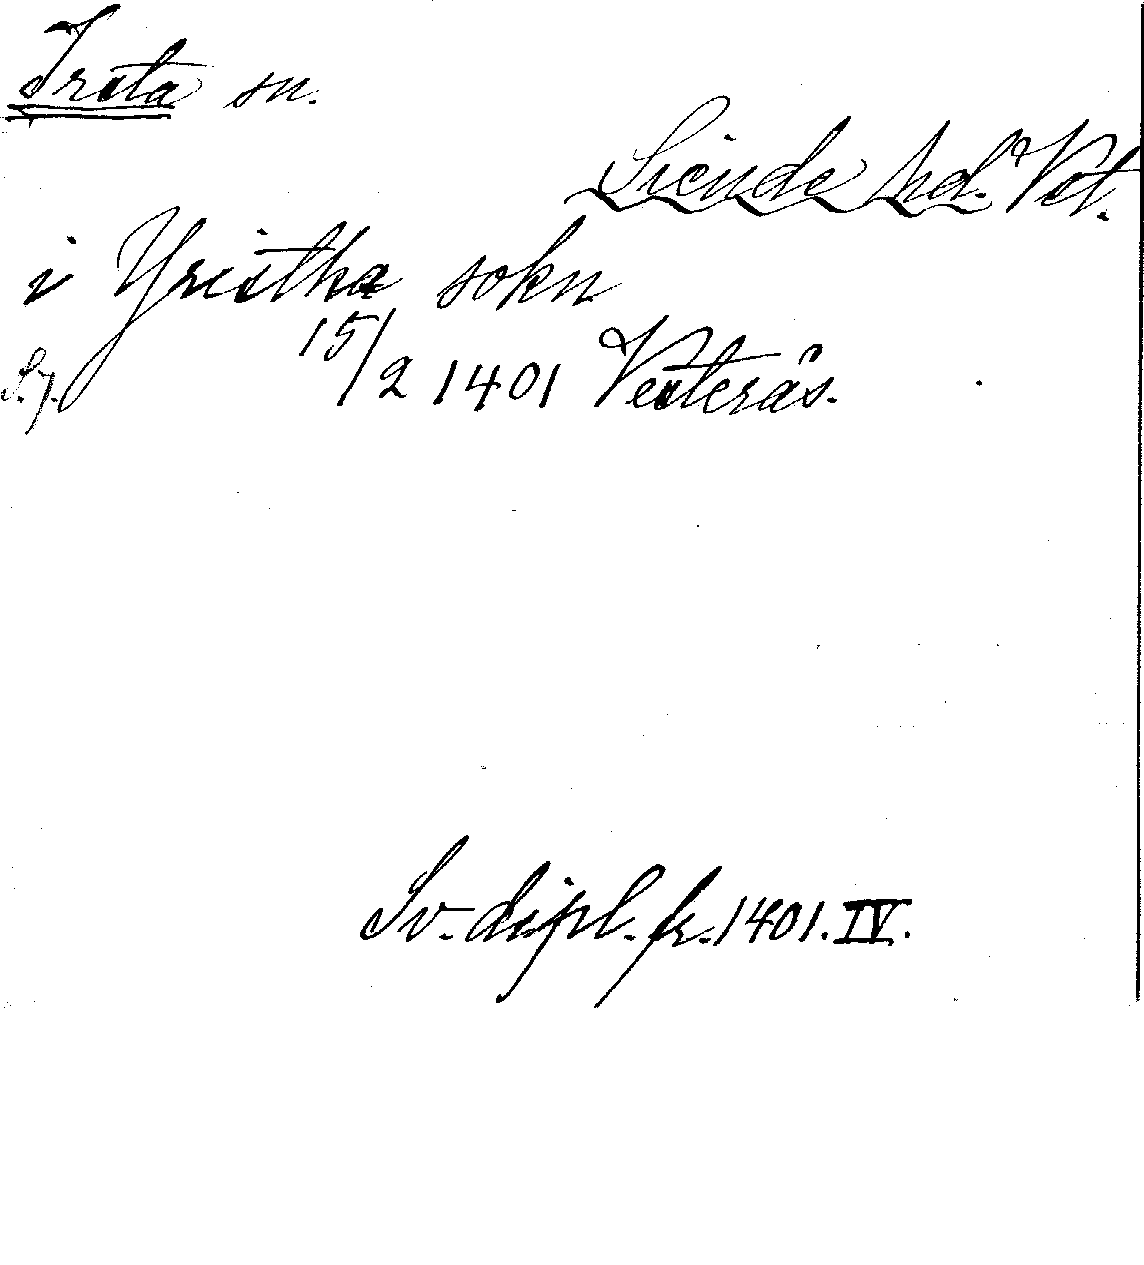 Irsta sn.
Siende hd. Vst.
i Yristha sokn
S. 7. 15/2 1401 Vesterås.
Sv. dipl. fr. 1401. IV.